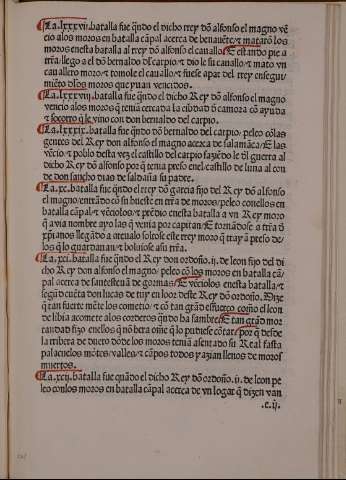 La.lxxxvij.batalla fue q̃ndo el dicho rrey dõ alfonso el magno vẽ
cio alos moros en batalla cãpal acerca de benauẽte/⁊ matarõ los
moros enesta batalla al rrey dõ alfonso el cauallo E estando pie a
trr̃a/llego a el dõ bernaldo dl̃ carpio/⁊ dio le su cauallo/⁊ mato vn
cauallero moro/⁊ tomole el cauallo/⁊ fuese apar del rrey ensegui/
miẽto dlos moros que yuan vencidos.
La.lxxxviij.batalla fue q̃ndo el Rey dõ alfonso el magno
vencio alos moros q̃ teniã cercada la cibdad d̃ camora cõ ayuda
⁊ socorro q̃ le vino con don bernaldo del carpio.
La.lxxxix.batalla fue q̃ndo dõ bernaldo del carpio/peleo cõlas
gentes del Rey don alfonso el magno acerca de salamãca/⁊ las
vẽcio/⁊ poblo desta vez el castillo del carpio fazẽdo le dl̃ guerra al
dicho Rey dõ alfonso por q̃ tenia preso enel castillo de luna al con
de don sancho dias de saldaña su padre.
La.xc.batalla fue q̃ndo el rrey dõ garcia fijo del Rey dõ alfonso
el magno/entrãdo cõ su hueste en trr̃a de moros/peleo conellos en
batalla cãpal/⁊ vẽciolos/⁊ prẽdio enesta batalla a vn Rey moro
q̃ auia nombre ayo las q̃ venia por capitan/⁊ tornãdose a trr̃a d̃
xp̃ianos llegãdo a atreualo soltose este rrey moro q̃ tray ã preso de/
los q̃ lo guardauan/⁊ boluiose asu trr̃a.
La.xci.batalla fue q̃ndo el Rey don ordoño.ij.de leon fijo del di
cho Rey don alfonso el magno/peleo cõ los moros en batalla cã/
pal acerca de santesteuã de gormas/⁊ vẽciolos enesta batalla/⁊
segũd cuẽta don lucas de tuy en loor deste Rey dõ ordoño. Dize
q̃ tan fuerte mẽte los cometio/⁊ cõ tan grãd esfuerço como el leon
de libia acomete alos corderos q̃ndo ha fambre E tan grãd mor
tandad fizo enellos q̃ nõ bera oñie q̃ lo pudiese cõtar/por q̃ desde
la ribera de duero dõde los moros tenuã asentado su Real fasta
palacuelos mõtes/valles/⁊ cãpos todos yazian llenos de moros
muertos.
La.xcij.batalla fue quãdo el dicho Rey dõ ordoño.ij.de leon pe
leo conlos moros en batalla cãpal acerca de vn logar q̃ dizen van
.c.ij.